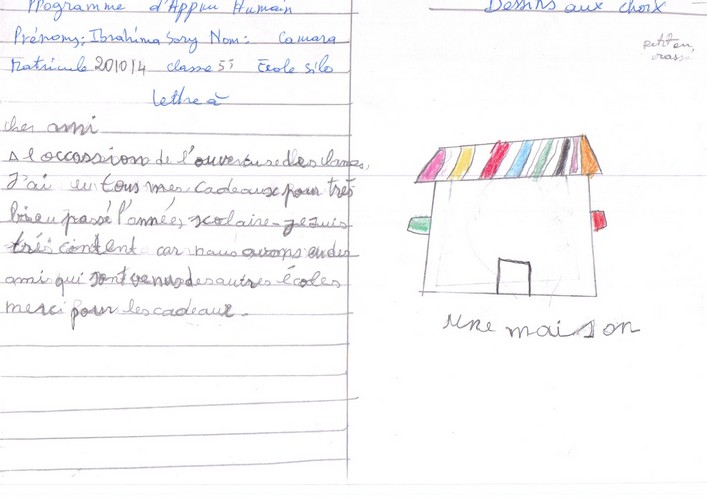 Programme d'Appui Humain
Prénoms: Ibrahima Sory Nom: Camara
Matricule 201014 classe 5è École silo
lettre à
cher ami
A l'occassion de l'ouverture des classes,
J'ai eu tous mes cadeaux pour très
bien passé l'année scolaire - je suis
très content car nous avons eu des
ami qui sont venus des autres écoles
merci pour les cadeaux.
Dessins aux choix
une maison